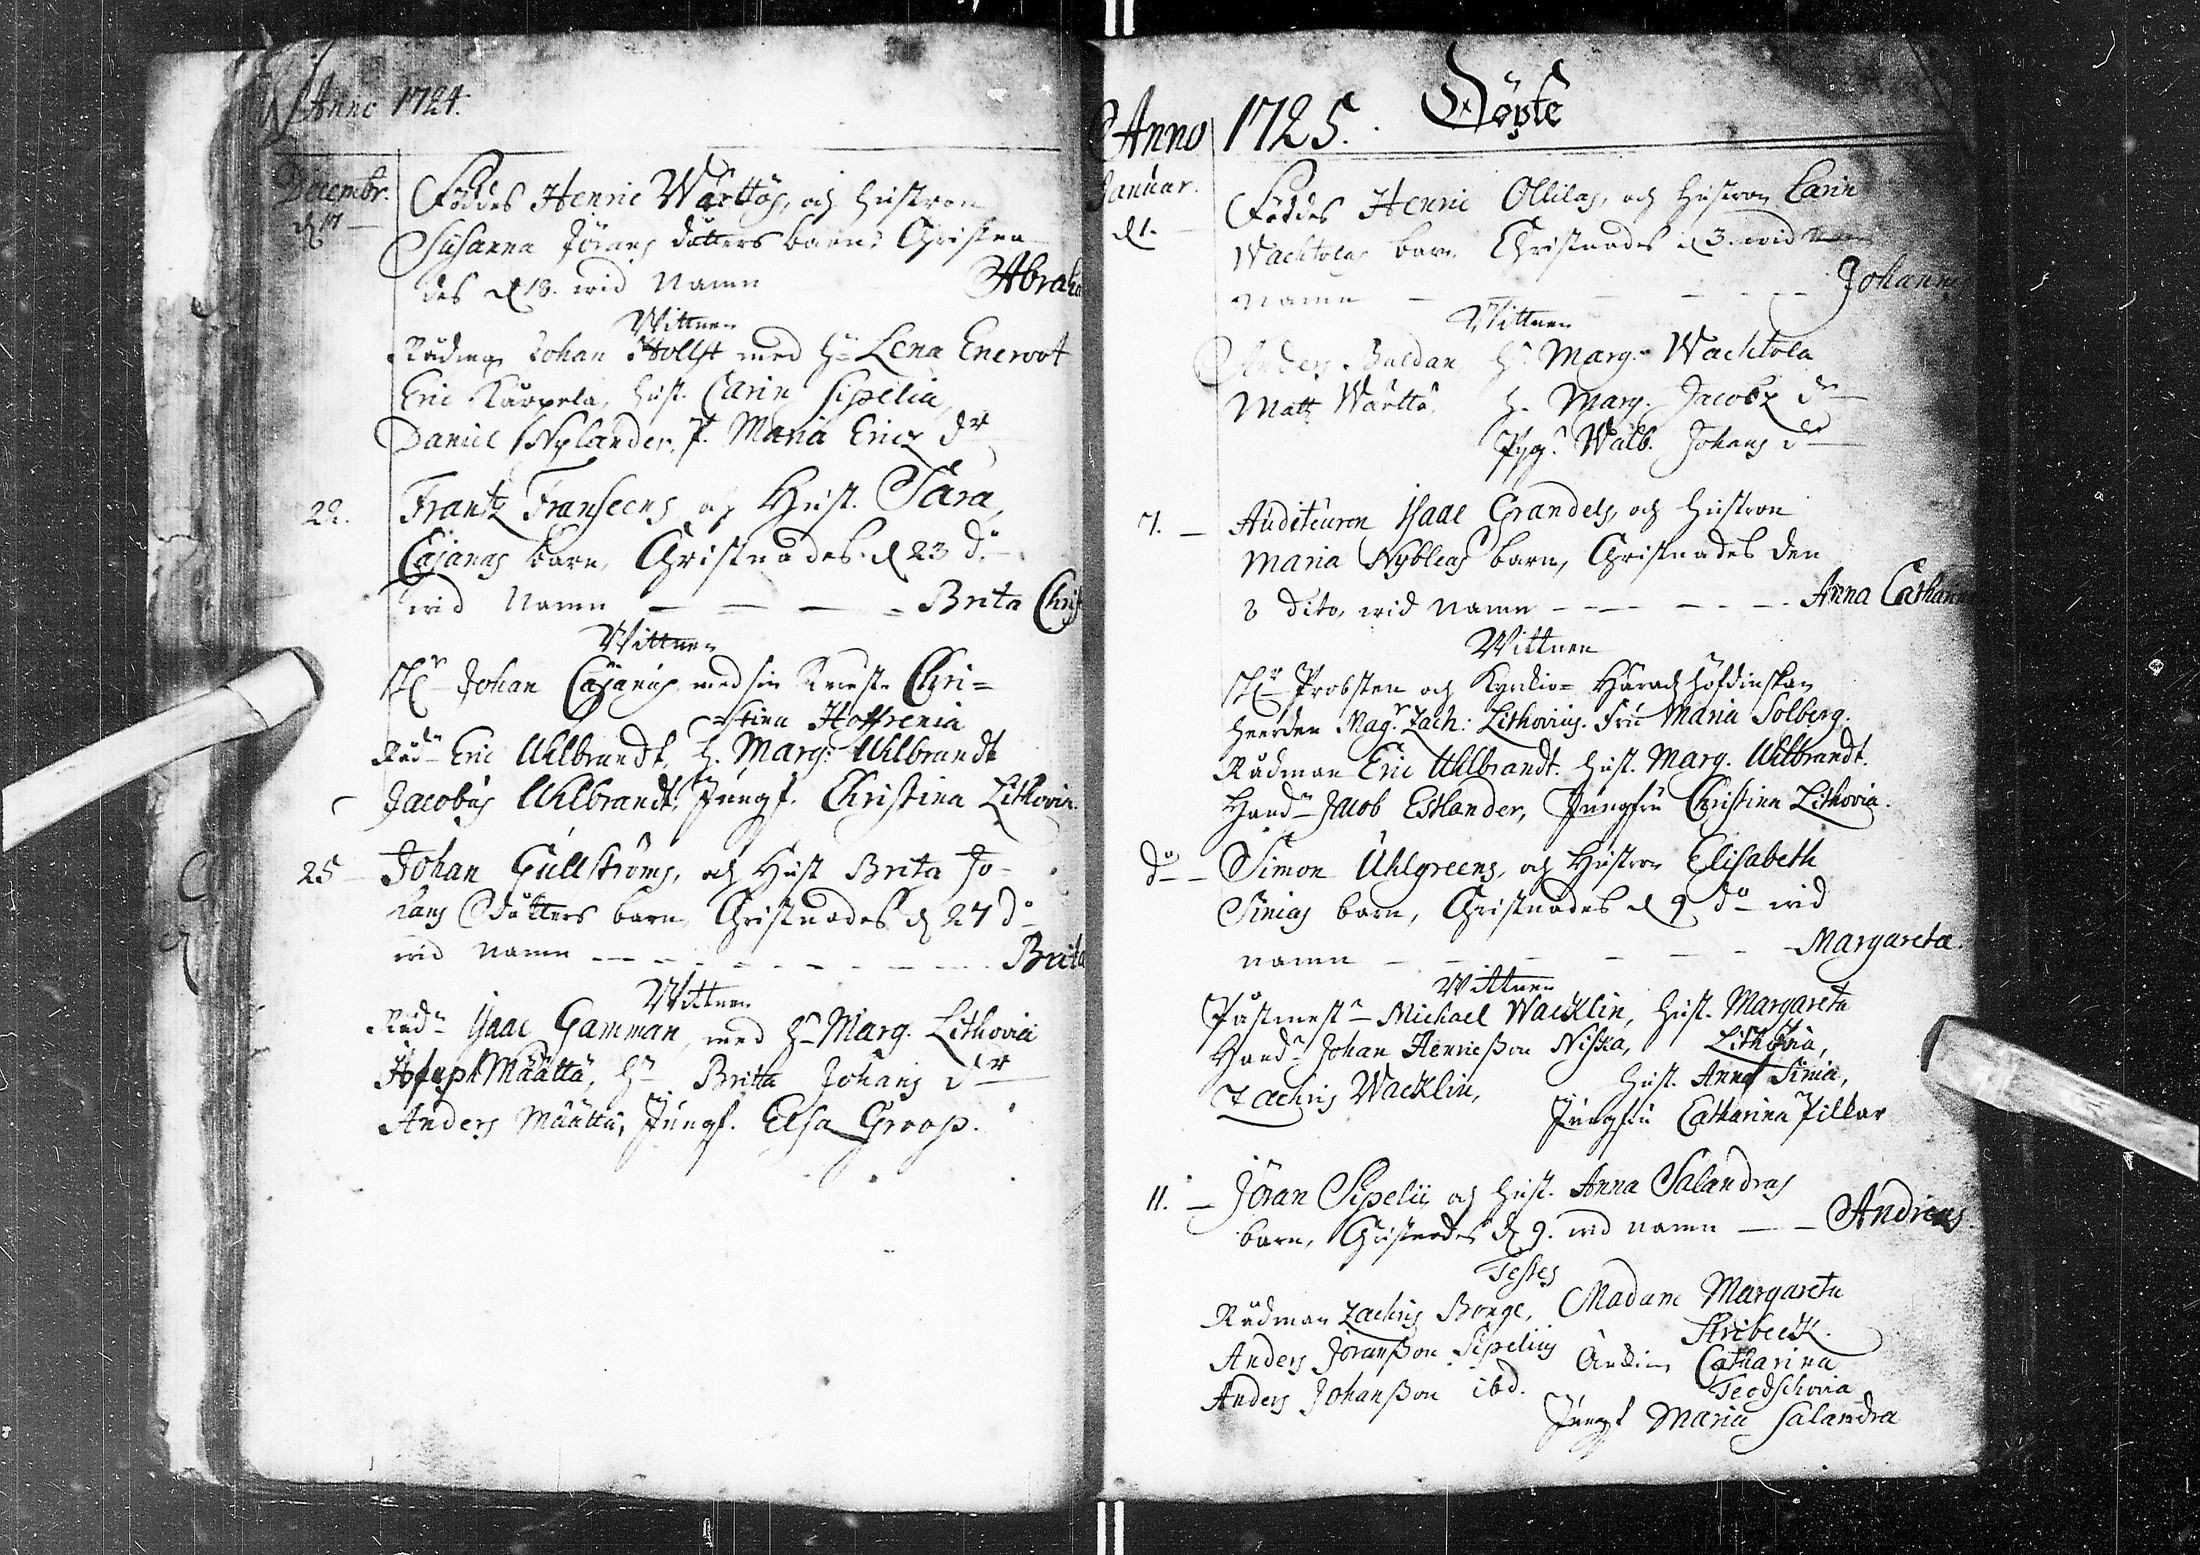 Anno 1724.
Decembr.
d 17 Föddes Henric Wärttös, och hustron
Susanna Jörans dotters barn, Christna
des d 18. wid Namn Abraha
Wittnen
Rådm. Johan Hollst med h. Lena Enewot
Eric Karpela, hust. Carin Sipelia,
Daniel Nylander, P. Maria Erics dr
22. Frantz Franseens och Hust. Sara
Cajanas barn, Christnades d 23 do
wid Namn — — — — Brita Christ
Wittnen
Hr Johan Cajanus, med sin Kärest. Chri=
=stina Hoffrenia
Rådn Eric Uhlbrandt, H. Marg: Uhlbrandt
Jacobus Uhlbrandt, Jungf. Christina Lithovia.
25 Johan Gullströms, och Hust Brita Jo-
hans Dotters barn, Christnades d 27 do
wid Namn — — — — Brita
Wittnen
Rådn Isaac Gamman, med H. Marg. Lithovia
Joseph Määttä, H. Britta Johans dr
Anders Määttä, Jungf. Elsa Groop.
Anno 1725. Döpte
Januar.
d 1. Föddes Henric Ollilas, och hustron Carin
Wachtolas barn Christnades d 3. wid
namn — — — — Johannes
Wittnen
Anders Buldan, H. Marg. Wachtola
Matts Wärttö, H. Marg. Jacobs dr
Pyg. Walb. Johans dr
7. — Auditeuren Isaac Grandels, och hustron
Maria Nybleas barn, Christnades den
8 dito, wid namn — — — — Anna Catharina
Wittnen
Hr Probsten och Kyrkio= Häradshöfdinskan
heerden Mag. Zach: Lithovius. Fru Maria Solberg.
Rådman Eric Uhlbrandt. hust. Marg. Uhlbrandt.
Handn Jacob Estlander, Jungfru Christina Lithovia.
do — Simon Uhlgreens, och Hustron Elisabeth
Sinias barn, Christnades d 9 do wid
namn — — — — Margareta.
Wittnen
Påstmestn Michael Wacklin, hust. Margareta
Handn Johan Henricßon Niska, Lithovia,
Zachris Wacklin, hust. Anna Sinia,
Jungfru Catharina Pillar
11. — Jöran Sipelii, och hust. Anna Salandras
barn, Christnades d 9. wid namn — — Andreas.
Testes
Rådman Zachris Borge, Madame Margareta
Stribeck.
Anders Joranßon Sipelius Catharina
Anders Johanßon ibd.
Jungf Maria Salandra